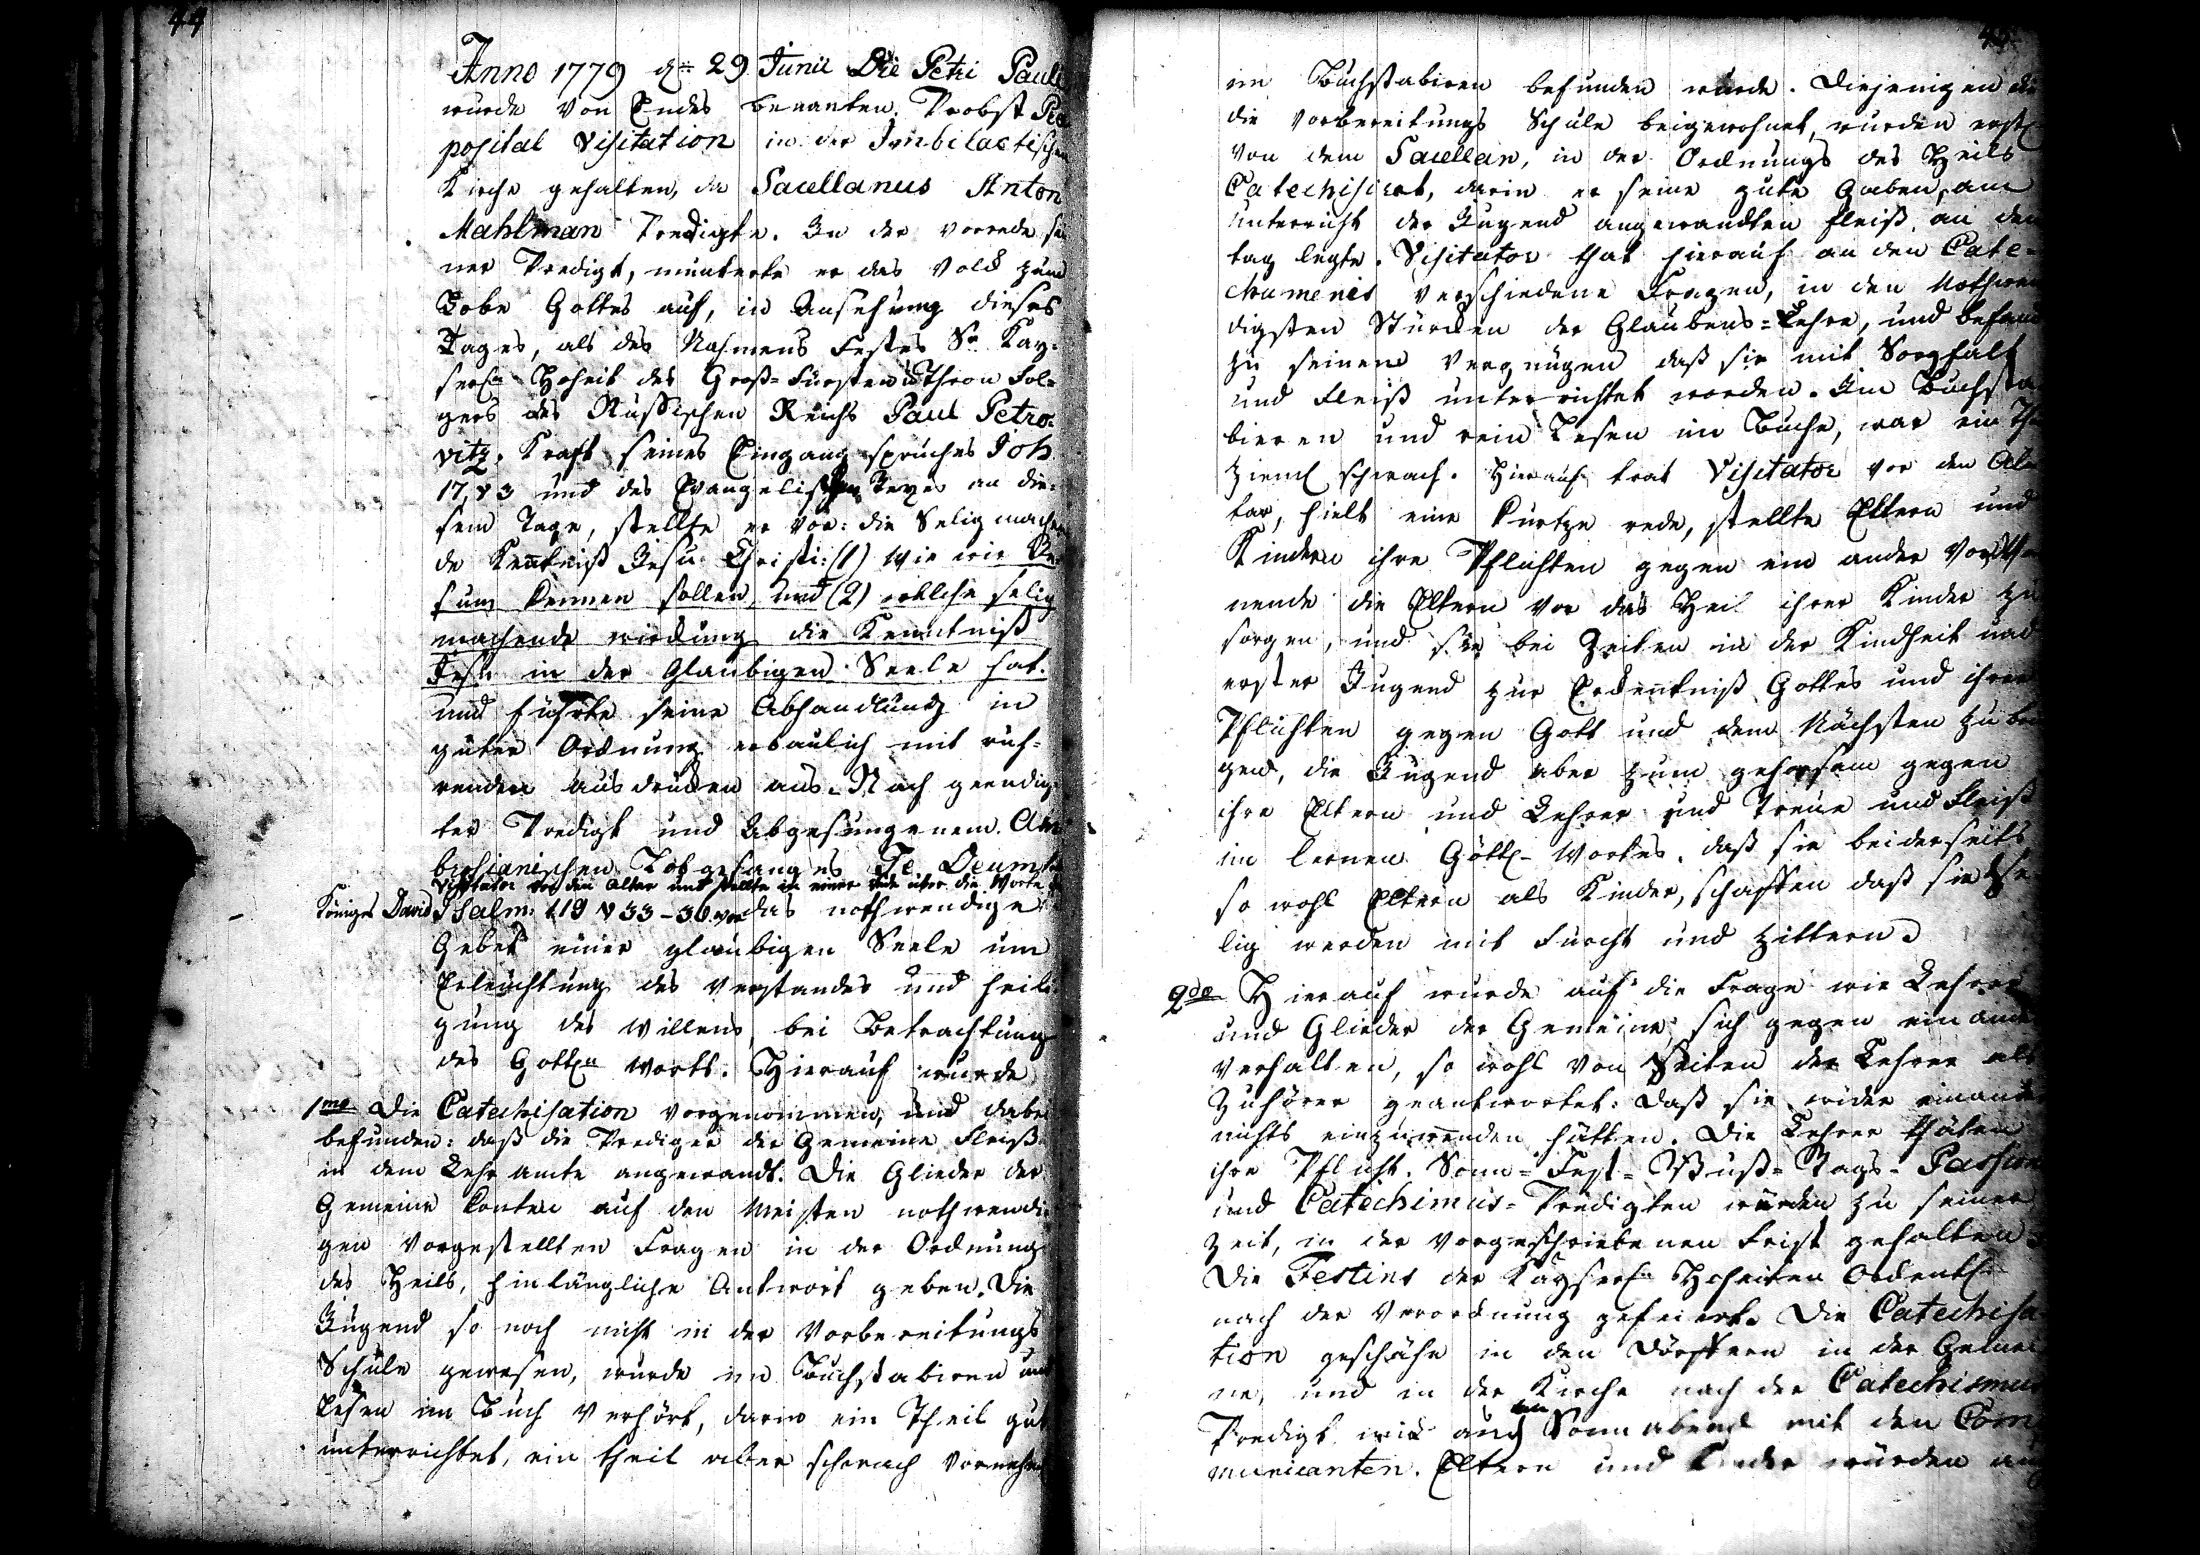 44
Anno 1779 dn 29 Junii Die Petri Pauli
wurde von Endes benanten Probst Prae
posital Visitation in der Imbilactischen
Kirche gehalten, da Sacellanus Anton
Mahlman Predigte. In der vorrede sei
ner Predigt, munterte er das Volck zum
Lobe Gottes auf, in Ansehung dieses
Tages, als des Nahmens Festes Sr Kay-
serln Hoheit des Groß-Fürsten u Thron Fol-
gers des Russischen Reichs Paul Petro-
vitz. Kraft seines Eingang spruches Joh
17, v 3 und des Evangelischen Textes an die-
sem Tage, stellte er vor: die Selig machen
de Kentniß Jesu Christi: (1) Wie wir Je-
sum kennen sollen, und (2) welche selig
machende wirckung die Kenntniß
Jesu in der Glaubigen Seele hat.
und führte seine Abhandlung in
guter Ordnung erbaulich mit rüh-
renden ausdrücken aus. Nach geendig
ter Predigt und Abgesungenem Am
brosianischen Lobgesanges Te Deum
Visitator vor den Altar und stellte in einer rede über die Worte
Königes David Psalm. 119 v 33-36 vor das nothwendige
Gebet einer glaubigen Seele um
Erleuchtung des Verstandes und heili
gung des Willens, bei Betrachtung
des Gottln Worts. Hierauf wurde
1mo Die Catechisation vorgenommen, und dabei
befunden: daß die Prediger der Gemeine Fleiß
in dem Lehr amte angewandt. Die Glieder der
Gemeine konten auf den Meisten nothwendi
gen vorgestellten Fragen in der Ordnung
des Heils, hinlängliche Antwort geben. Die
Jugend so noch nicht in der Vorbereitungs
Schule gewesen, wurde im Buchstabiren und
Lesen im Buch verhört, darin ein Theil gut
unterrichtet, ein theil aber schwach vornehml
im Buchstabiren befunden wurde. Diejenigen die
die Vorbereitungs Schule beigewohnet, wurden erstl
von dem Sacellan, in der Ordnungs des Heils
Catechisiret, darin er seine gute Gaben, am
Unterricht der Jugend angewandten fleiß, an den
tag legte. Visitator that hierauf an den Cate-
chumenis verschiedene Fragen, in den Nothwen
digsten Stücken der Glaubens-Lehre, und befand
zu seinem Vergnügen daß sie mit Sorgfalt
und Fleiß unterrichtet worden. Im Buchsta
bieren und rein Lesen im Buche, war ein Th
ziemL schwach. Hierauf trat Visitator vor den Al
tar, hielt eine kurtze rede, stellte Eltern und
Kindern ihre Pflichten gegen ein ander vor
nemde die Eltern vor das Heil ihrer Kinder zu
sorgen, und sie bei Zeiten in der Kindheit und
erster Jugend zur Erkentniß Gottes und ihrer
Pflichten gegen Gott und dem Nächsten zu brin
gen, die Jugend aber zum gehorsam gegen
ihre Eltern und Lehrer und Treue und Fleiß
im lernen Göttl. Wortes, daß sie beiderseits
so wohl Eltern als Kinder, schafften daß sie se
lig werden mit Furcht und zittern.
2do Hierauf wurde auf die Frage wie Lehrer
und Glieder der Gemeine, sich gegen ein ander
verhalten, so wohl von Seiten der Lehrer als
Zuhörer geantwortet: daß sie wider einander
nichts einzuwenden hätten. Die Lehrer thäten
ihre Pflicht. Sonn- Fest- Buß- Tags- Passion
und Catechimus-Predigten würden zu seiner
Zeit, in der vorgeschriebenen Frist gehalten.
Die Festins der Kayserln Hoheiten Ordentl
nach der Verordnung gefeiert. Die Catechisa
tion geschähe in den Dörffern in der Gemei
ne, und in der Kirche nach der Catechismus
Predigt wie auch am Sonnabend mit den Com
municanten. Eltern und Kinder würden